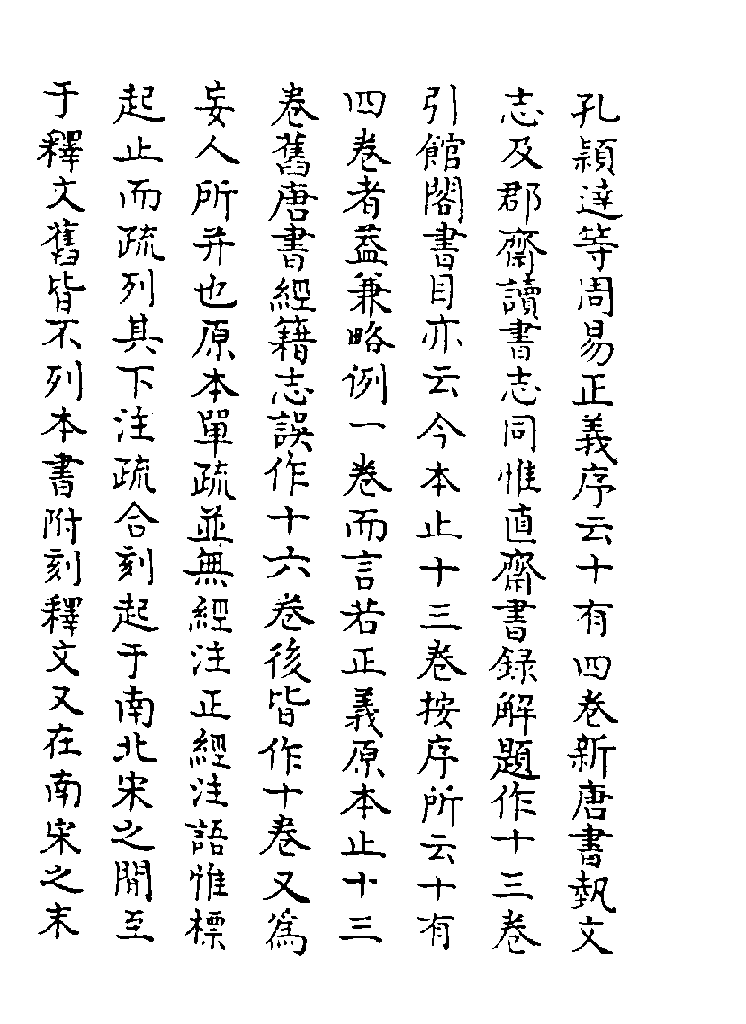 孔穎達等周易正義序云十有四卷新唐書埶文
志及郡齋讀書志同惟直齋書録解題作十三卷
引館閣書目亦云今本止十三卷按序所云十有
四卷者葢兼略例一卷而言若正義原本止十三
卷舊唐書經籍志誤作十六卷後皆作十卷又爲
妄人所并也原本單疏並無經注正經注語惟標
起止而疏列其下注疏合刻起于南北宋之閒至
于釋文舊皆不列本書附刻釋文又在南宋之末